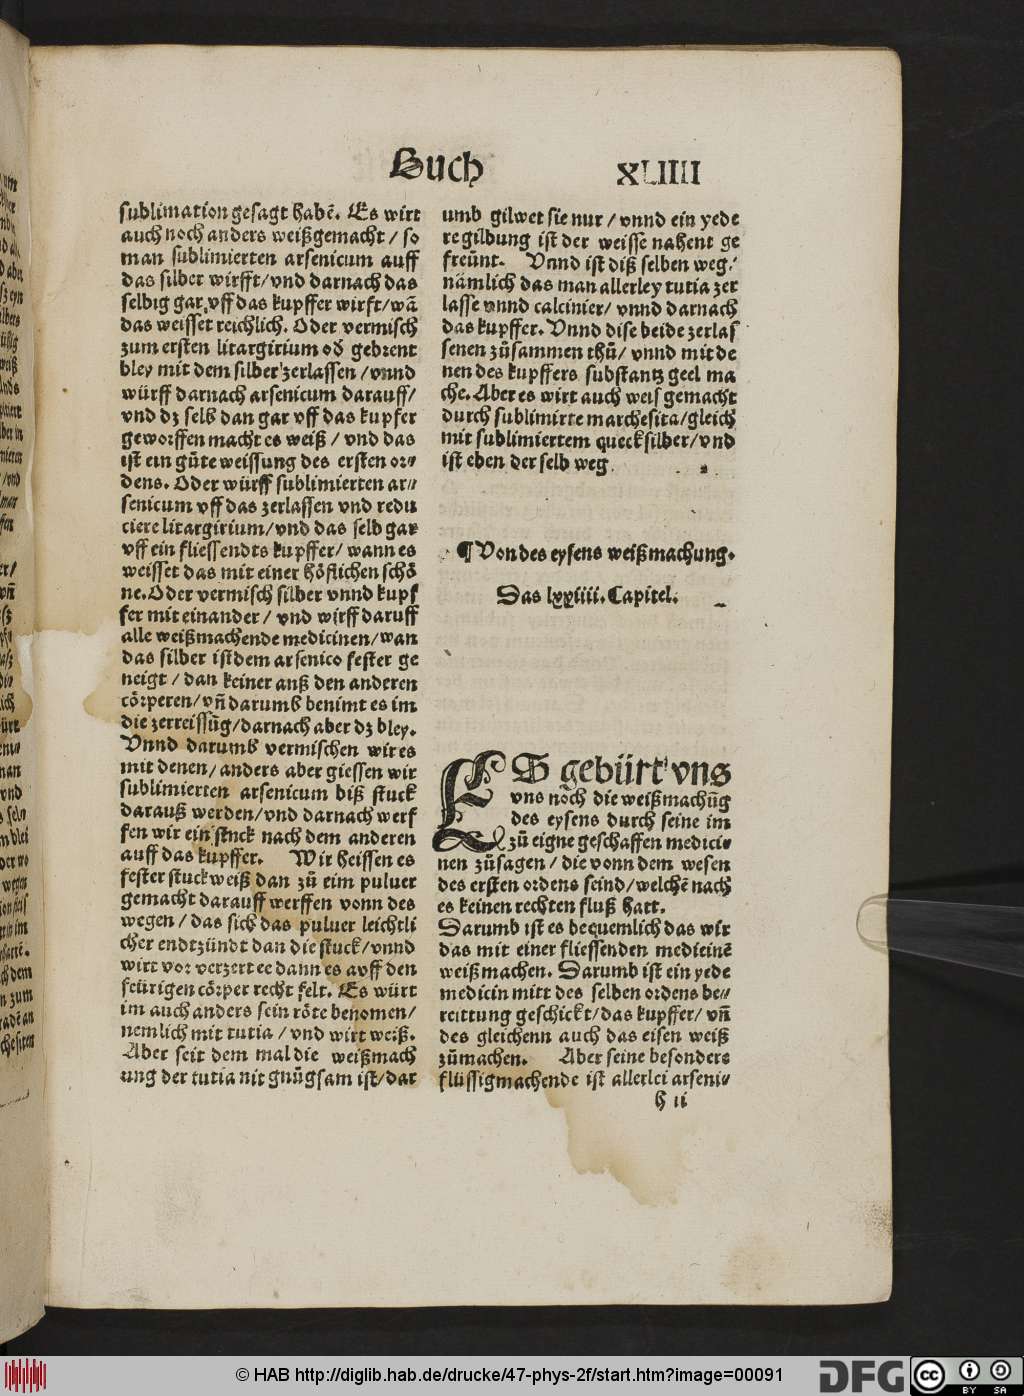 Buch XLIIII
sublimation gesagt habē. Es wirt
auch noch anders weißgemacht / so
man sublimierten arsenicum auff
das silber wirfft/vnd darnach das
selbig gar vff das kupffer wirft/wā
das weisset reichlich. Oder vermisch
zum ersten litargirium od gebrent
bley mit dem silber zerlassen / vnnd
würff darnach arsenicum darauff/
vnd dz selb dan gar vff das kupfer
geworffen macht es weiß / vnd das
ist ein gůte weissung des ersten or⸗
dens. Oder würff sublimierten ar⸗
senicum vff das zerlassen vnd redu
ciere litargirium/vnd das selb gar
vff ein fliessendts kupffer/ wann es
weisset das mit einer höflichen schö
ne. Oder vermisch silber vnnd kupf
fer mit einander / vnd wirff daruff
alle weißmachende medicinen/wan
das silber ist dem arsenico fester ge
neigt / dan keiner anß den anderen
cörperen/vn̄ darumb benimt es im
die zerreissūg/darnach aber dz bley.
Vnnd darumb vermischen wir es
mit denen/anders aber giessen wir
sublimierten arsenicum biß stuck
darauß werden/vnd darnach werf
fen wir ein stnck nach dem anderen
auff das kupffer. Wir heissen es
fester stuckweiß dan zů eim puluer
gemacht darauff werffen vonn des
wegen / das sich das puluer leichtli
cher endtzündt dan die stuck/vnnd
wirt vor verzert ee dann es avff den
feürigen cörper recht felt. Es würt
im auch anders sein röte benomen/
nemlich mit tutia / vnd wirt weiß.
Aber seit dem mal die weißmach
ung der tutia nit gnůgsam ist/dar
umb gilwet sie nur / vnnd ein yede
re gilbung ist der weisse nahent ge
freünt. Vnnd ist diß selben weg/
nämlich das man allerley tutia zer
lasse vnnd calcinier/ vnnd darnach
das kupffer. Vnnd dise beide zerlas
senen zůsammen thů/ vnnd mit de
nen des kupffers substantz geel ma
che. Aber es wirt auch weis gemacht
durch sublimirte marchesita/gleich
mit sublimiertem quecksilber/vnd
ist eben der selb weg
¶ Von des eysens weißmachung.
Das lxxiiii. Capitel.
ES gebürt vns
vns noch die weißmachūg
des eysens durch seine im
zů eigne geschaffen medici⸗
nen zůsagen / die vonn dem wesen
des ersten ordens seind/welchē nach
es keinen rechten fluß hatt.
Darumb ist es bequemlich das wir
das mit einer fliessenden medicinē
weiß machen. Darumb ist ein yede
medicin mitt des selben ordens be⸗
reittung geschickt/das kupffer/ vn̄
des gleichenn auch das eisen weiß
zůmachen. Aber seine besonders
flüssigmachende ist allerlei arseni⸗
h ii
© HAB http://diglib.hab.de/drucke/47-phys-2f/start.htm?image=00091
DFG
cc BY SA